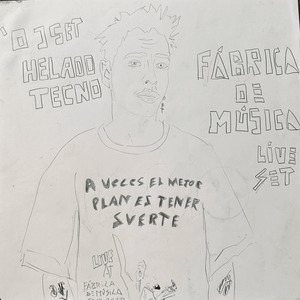 DJ SET
HELADO
TECNO
FÁBRICA
DE
MÚSICA
LIVE
SET
A VECES EL MEJOR
PLAN ES TENER
SUERTE
LIVE
AT
FÁBRICA
DE MÚSICA